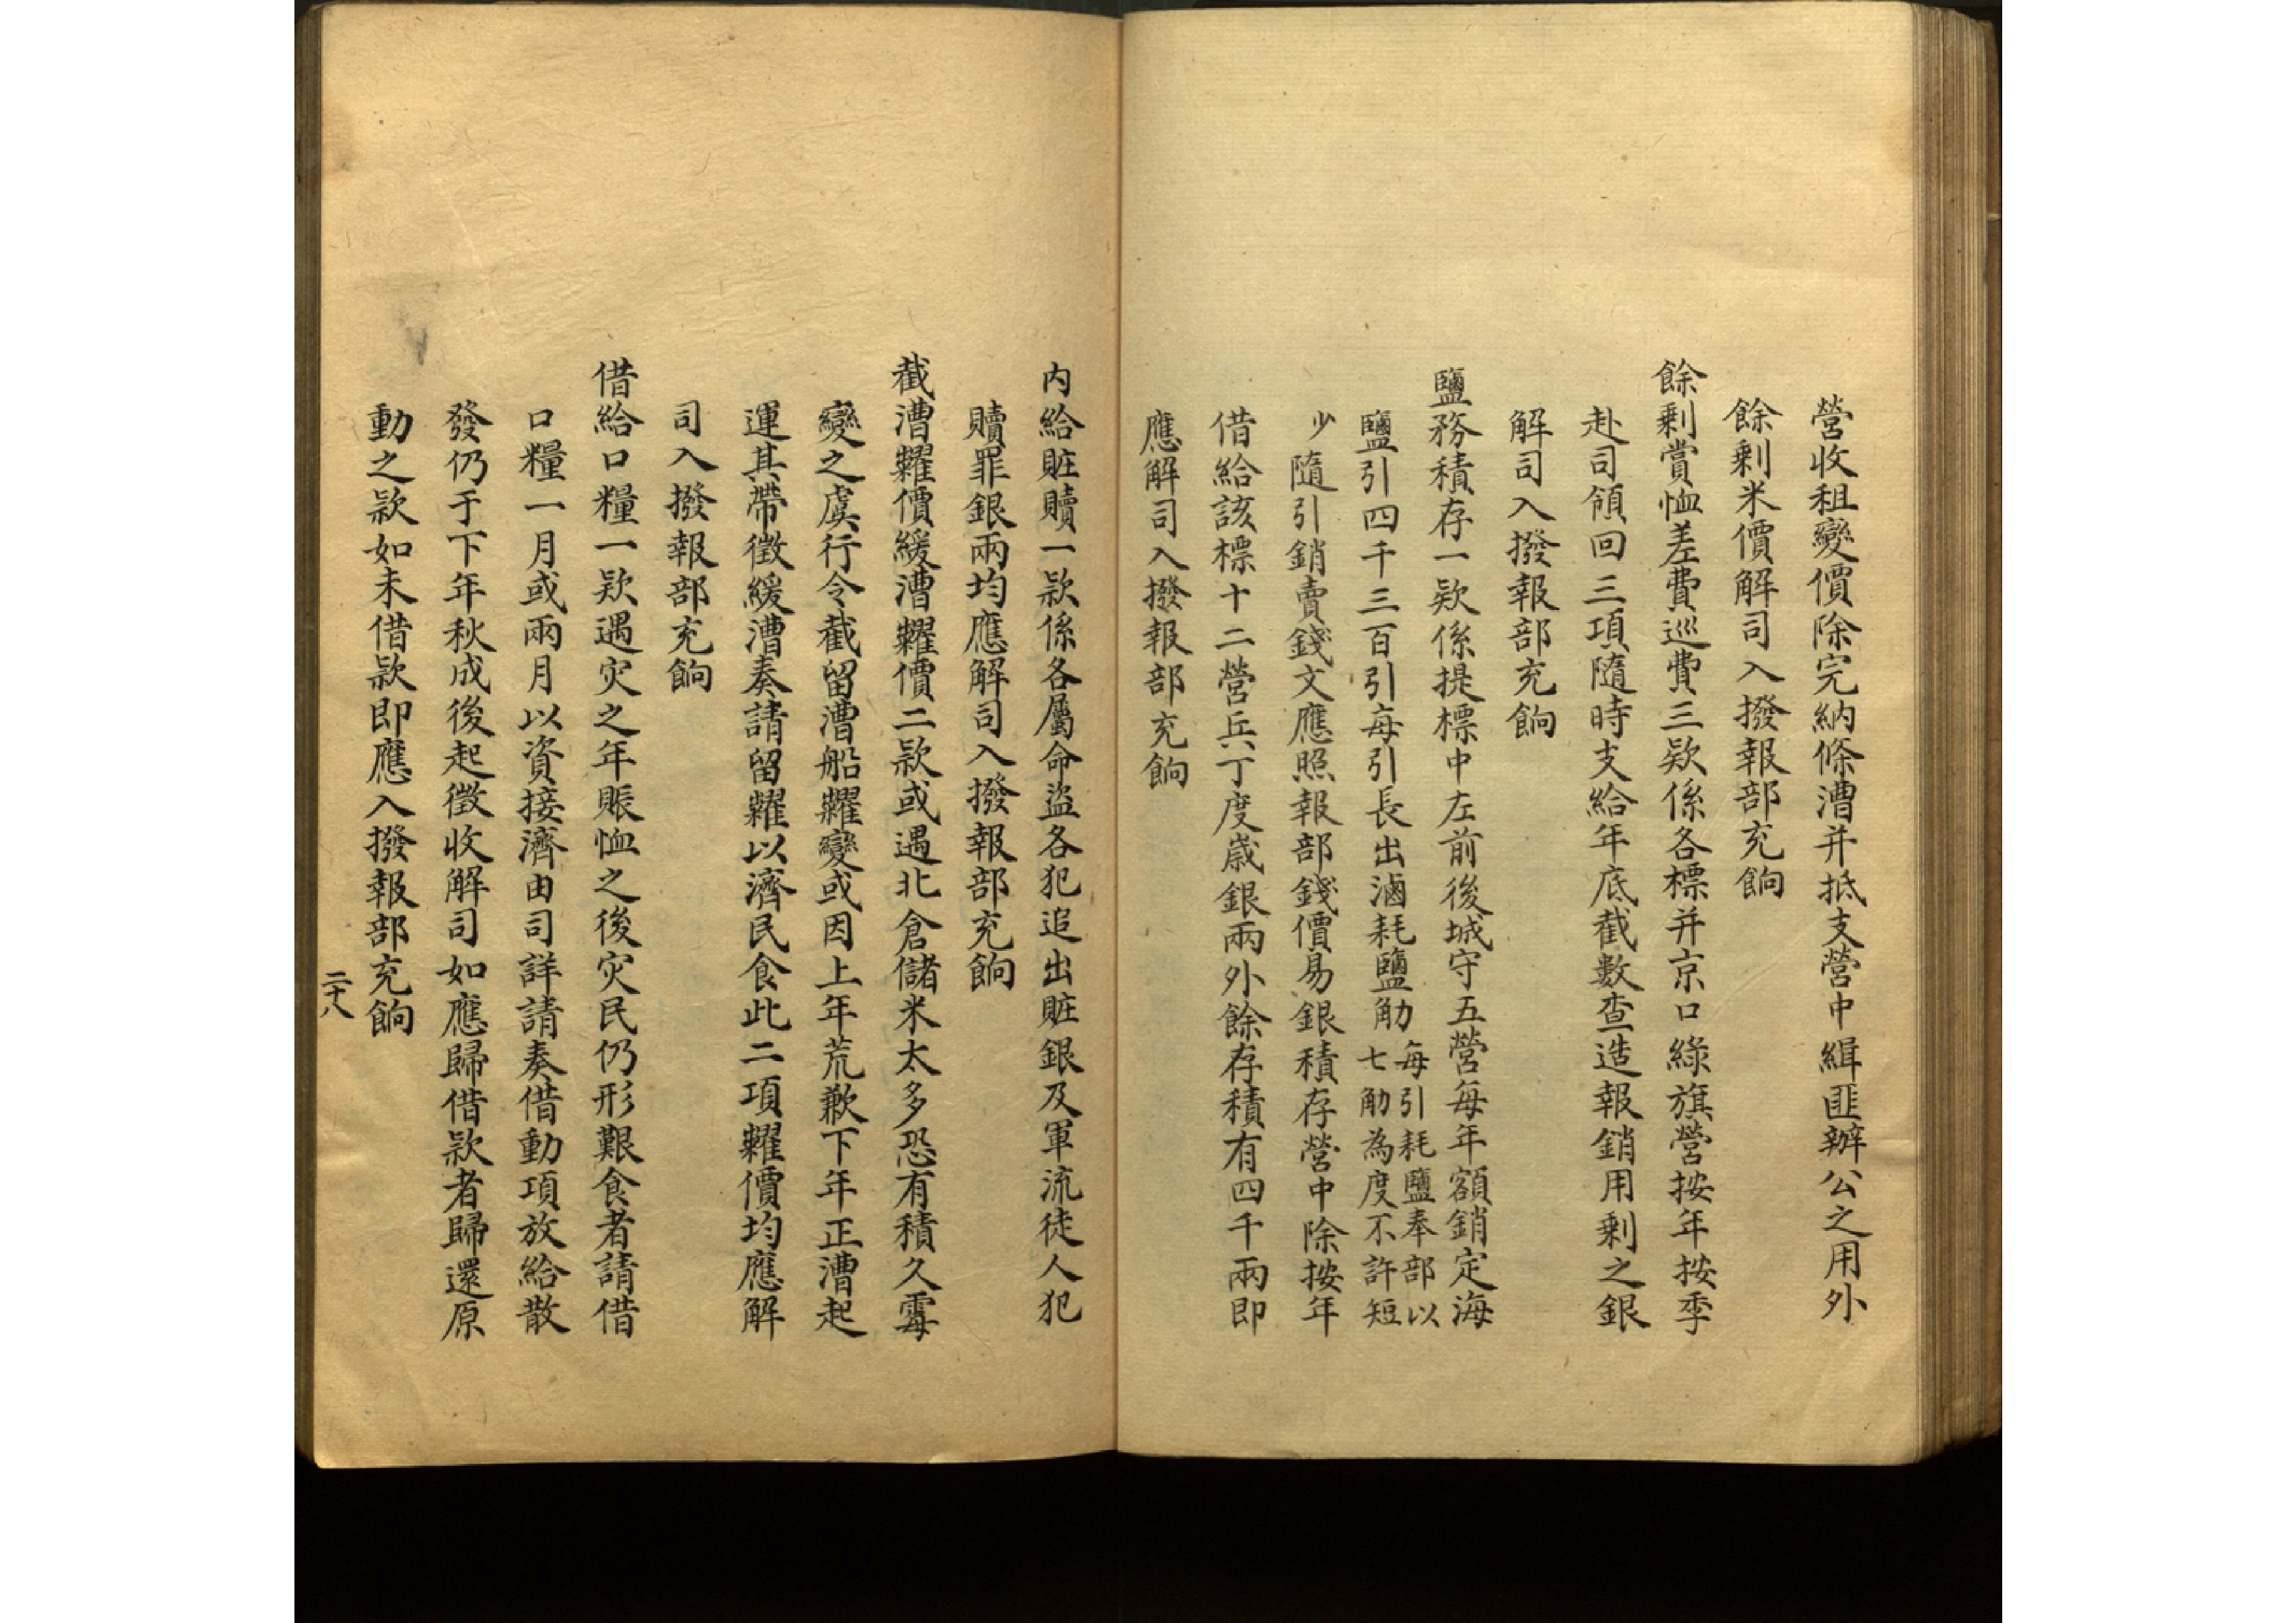 營收租變價除完納條漕并抵支營中緝匪辦公之用外
餘剩米價解司入撥報部充餉
餘剩賞恤差費巡費三欵係各標并京口綠旗營按年按季
赴司領回三項隨時支給年底截數查造報銷用剩之銀
解司入撥報部充餉
鹽務積存一欵係提標中左前後城守五營每年額銷定海
鹽引四千三百引每引長出滷耗鹽觔
每引耗鹽奉部以
七觔為度不許短
少
隨引銷賣錢文應照報部錢價易銀積存營中除按年
借給該標十二營兵丁度歲銀兩外餘存積有四千兩即
應解司入撥報部充餉
内給賍贖一款係各屬命盜各犯追出賍銀及軍流徒人犯
贖罪銀兩均應解司入撥報部充餉
截漕糶價緩漕糶價二款或遇北倉儲米太多恐有積久霉
變之虞行令截留漕船糶變或因上年荒歉下年正漕起
運其帶徵緩漕奏請留糶以濟民食此二項糶價均應解
司入撥報部充餉
借給口糧一欵遇灾之年賑恤之後灾民仍形艱食者請借
口糧一月或兩月以資接濟由司詳請奏借動項放給散
發仍于下年秋成後起徵收解司如應歸借款者歸還原
動之款如未借款即應入撥報部充餉
二十八